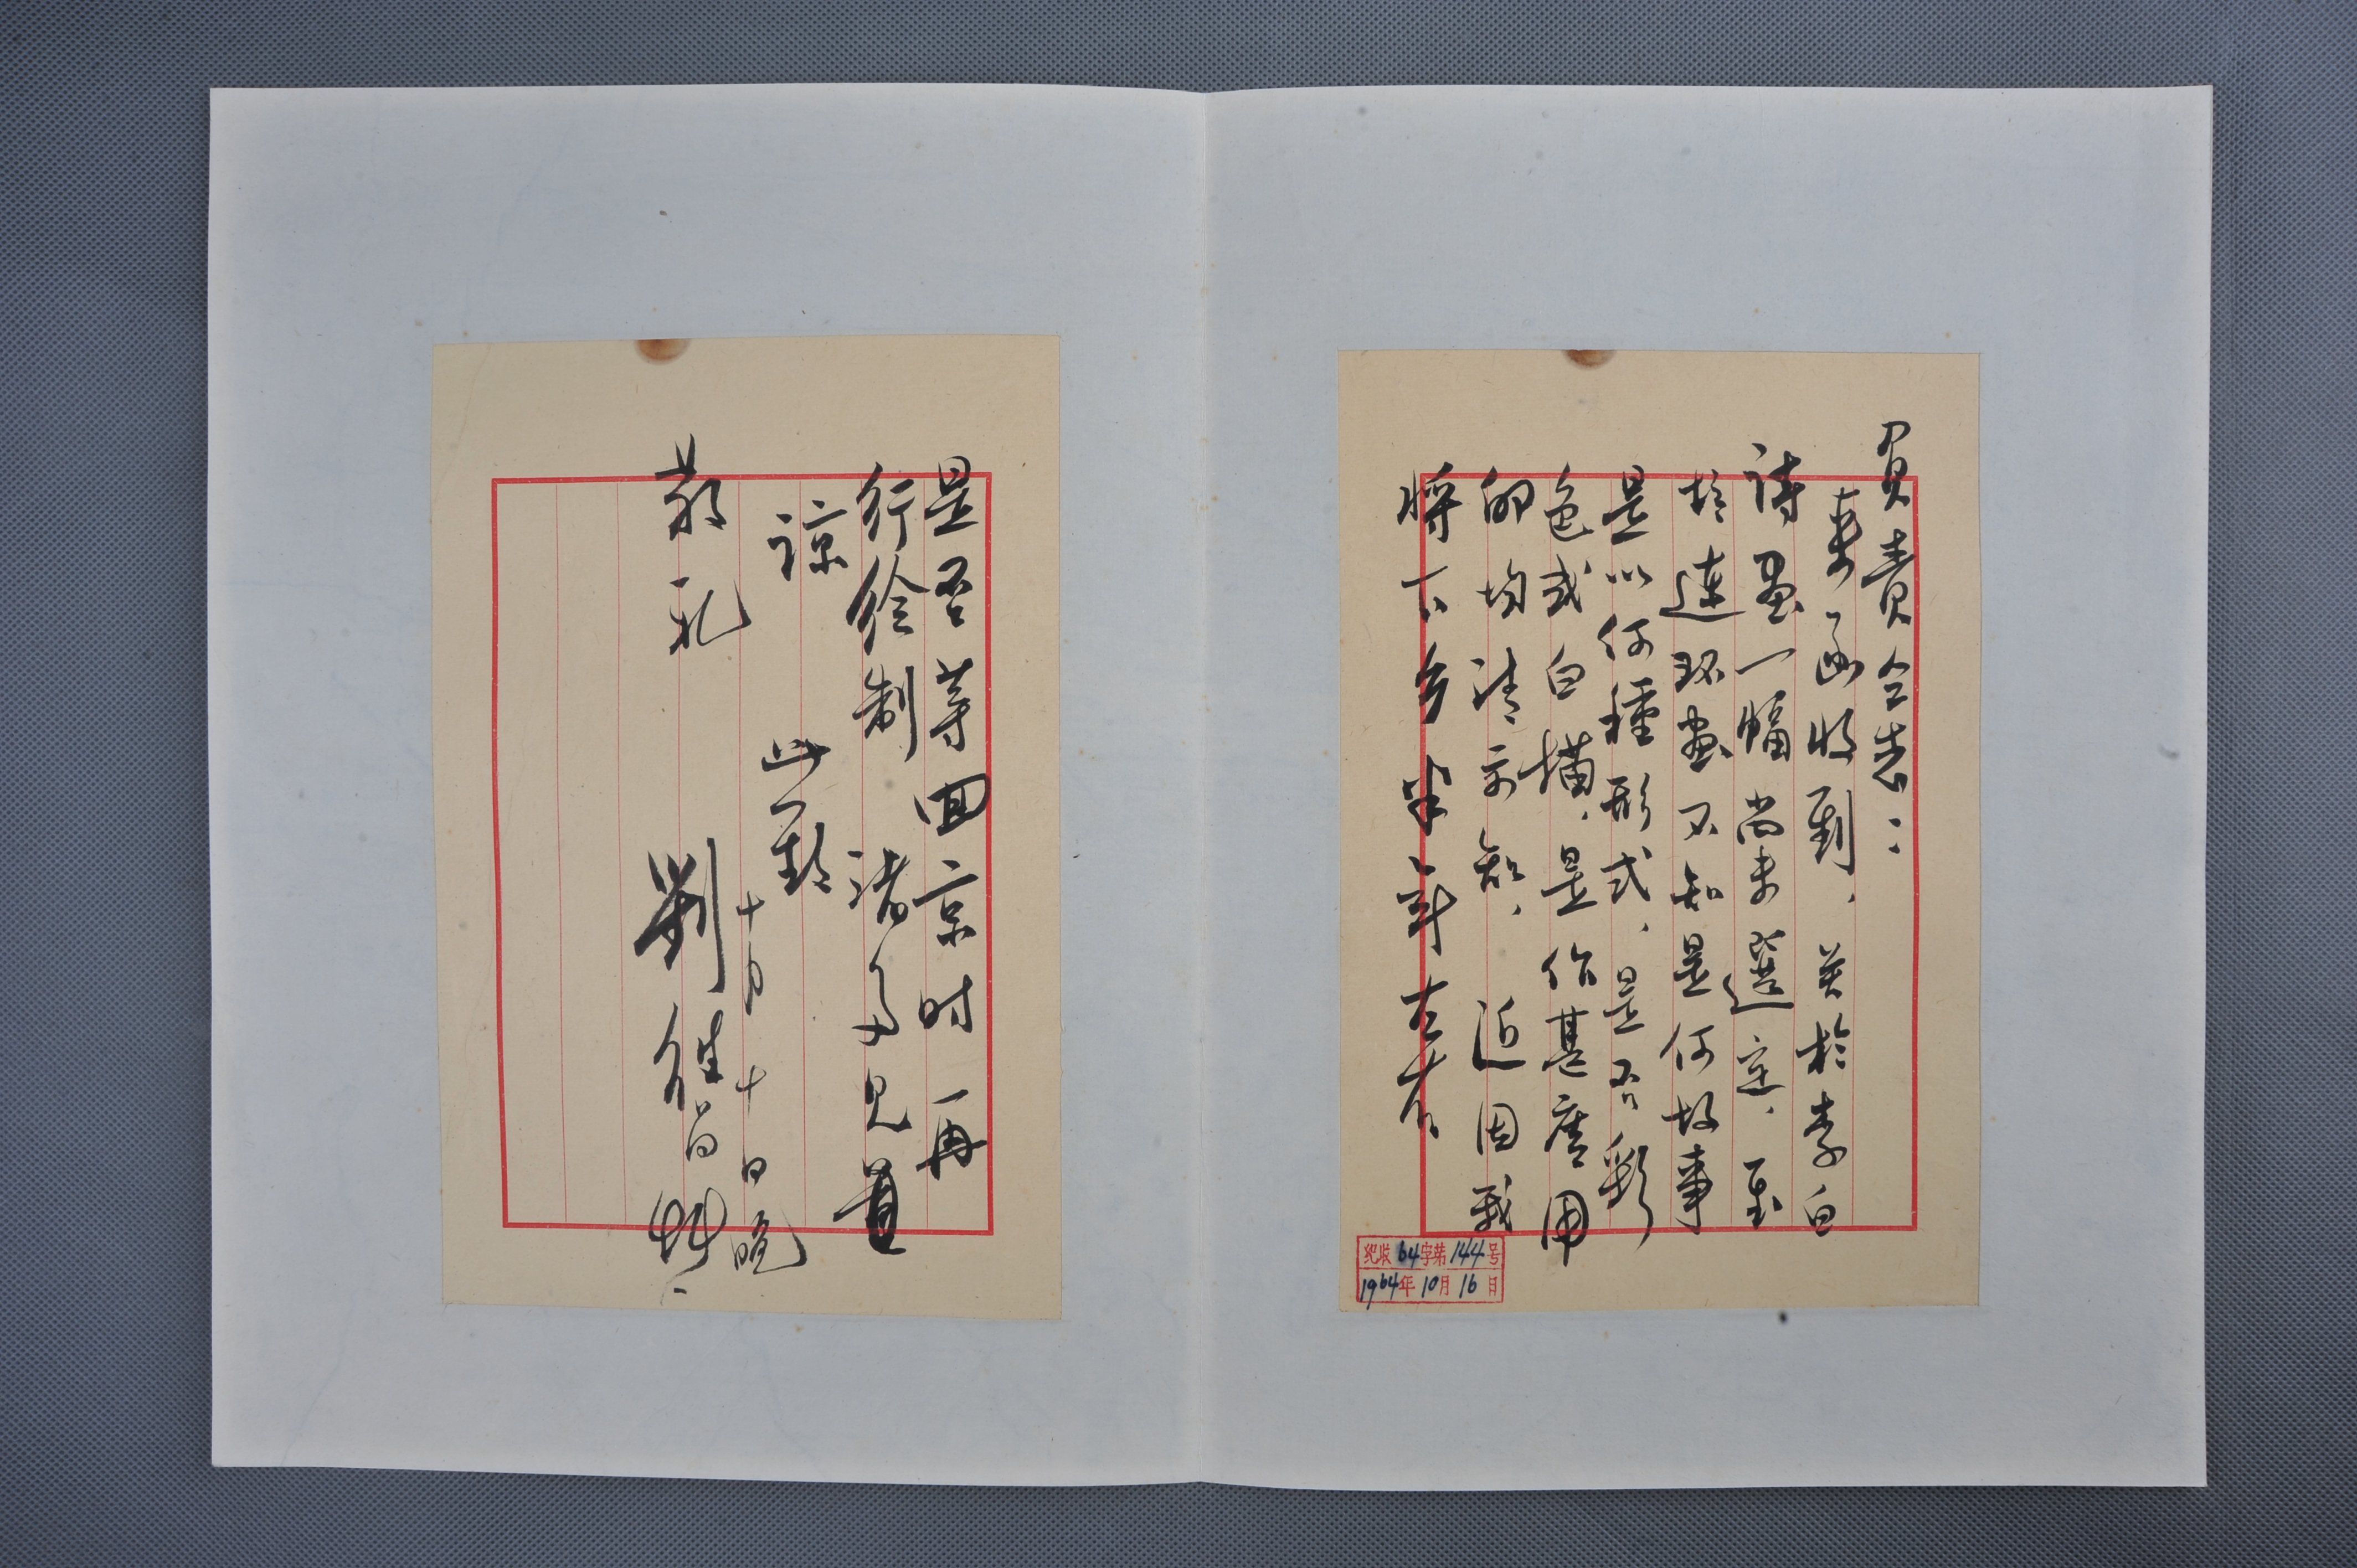 負責仝志：
来函收到，关於李白
詩畫一幅尚未選定，至
於連环畫不知是何故事
是以何種形式，是否彩
色或白描，是作甚麽用
的均请示知，近因我
将下乡半年左右
纪收64字第144号
1964年10月16日
是否等回京时再
行绘制 诸多见
谅 此致
敬礼
十月十日晚
劉继卣